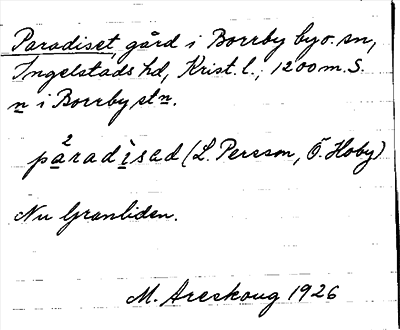 Paradiset, gård i Borrby by o. sn,
Ingelstads hd, Krist. l.; 1200 m. S.
n i Borrby stn.
pàradìsad (L. Persson, Ö. Hoby)
Nu Granliden.
M. Areskoug 1926